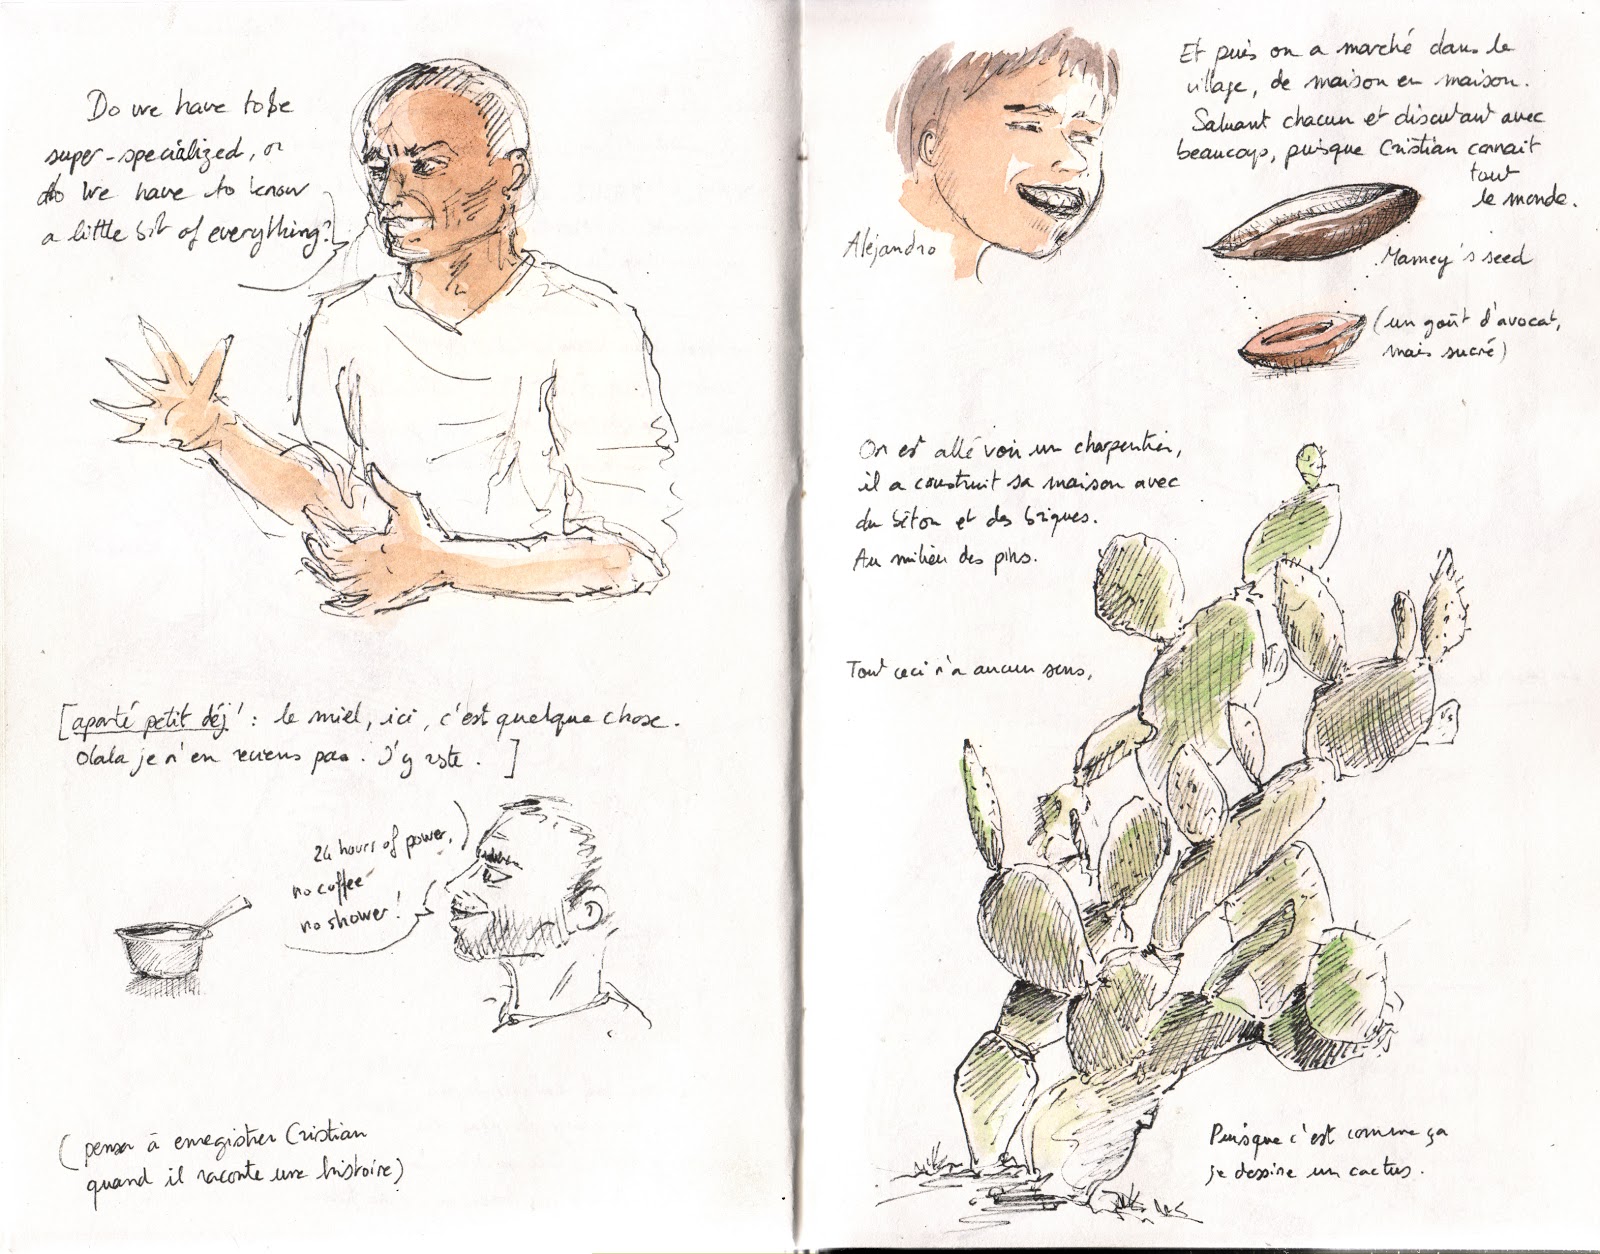 Do we have to be
super-specialized, or
do we have to know
a little bit of everything?
[aparté petit déj' : le miel, ici, c'est quelque chose.
Olala je n'en reviens pas. J'y reste. ]
24 hours of power,
no coffee
no shower!
(penser à enregistrer Cristian
quand il raconte une histoire)
Et puis on a marché dans le
village, de maison en maison.
Saluant chacun et discutant avec
beaucoup, puisque Cristian connait
tout
le monde.
Alejandro
Mamey's seed
(un goût d'avocat,
mais sucré)
On est allé voir un charpentier,
il a construit sa maison avec
du béton et des briques.
Au milieu des pins.
Tout ceci n'a aucun sens,
Puisque c'est comme ça
je dessine un cactus.